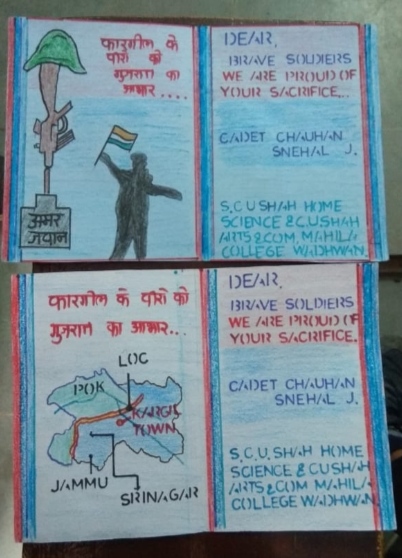 कारगील के
वीरो को
गुजरात का
आभार....
अमर
जवान
DEAR,
BRAVE SOLDIERS
WE ARE PROUD OF
YOUR SACRIFICE...
CADET CHAUHAN
SNEHAL J.
S,C,U SHAH HOME
SCIENCE & C.U.SHAH
ARTS & COM, MAHILA
COLLEGE WADHWAN.
कारगील के वीरो को
गुजरात का आभार...
LOC
POK
KARGIL
TOWN
JAMMU
SRINAGAR
DEAR,
BRAVE SOLDIERS
WE ARE PROUD OF
YOUR SACRIFICE.
CADET CHAUHAN
SNEHAL J.
S,C,U,SHAH HOME
SCIENCE & CUSHAH
ARTS & COM MAHILA
COLLEGE WADHWAN